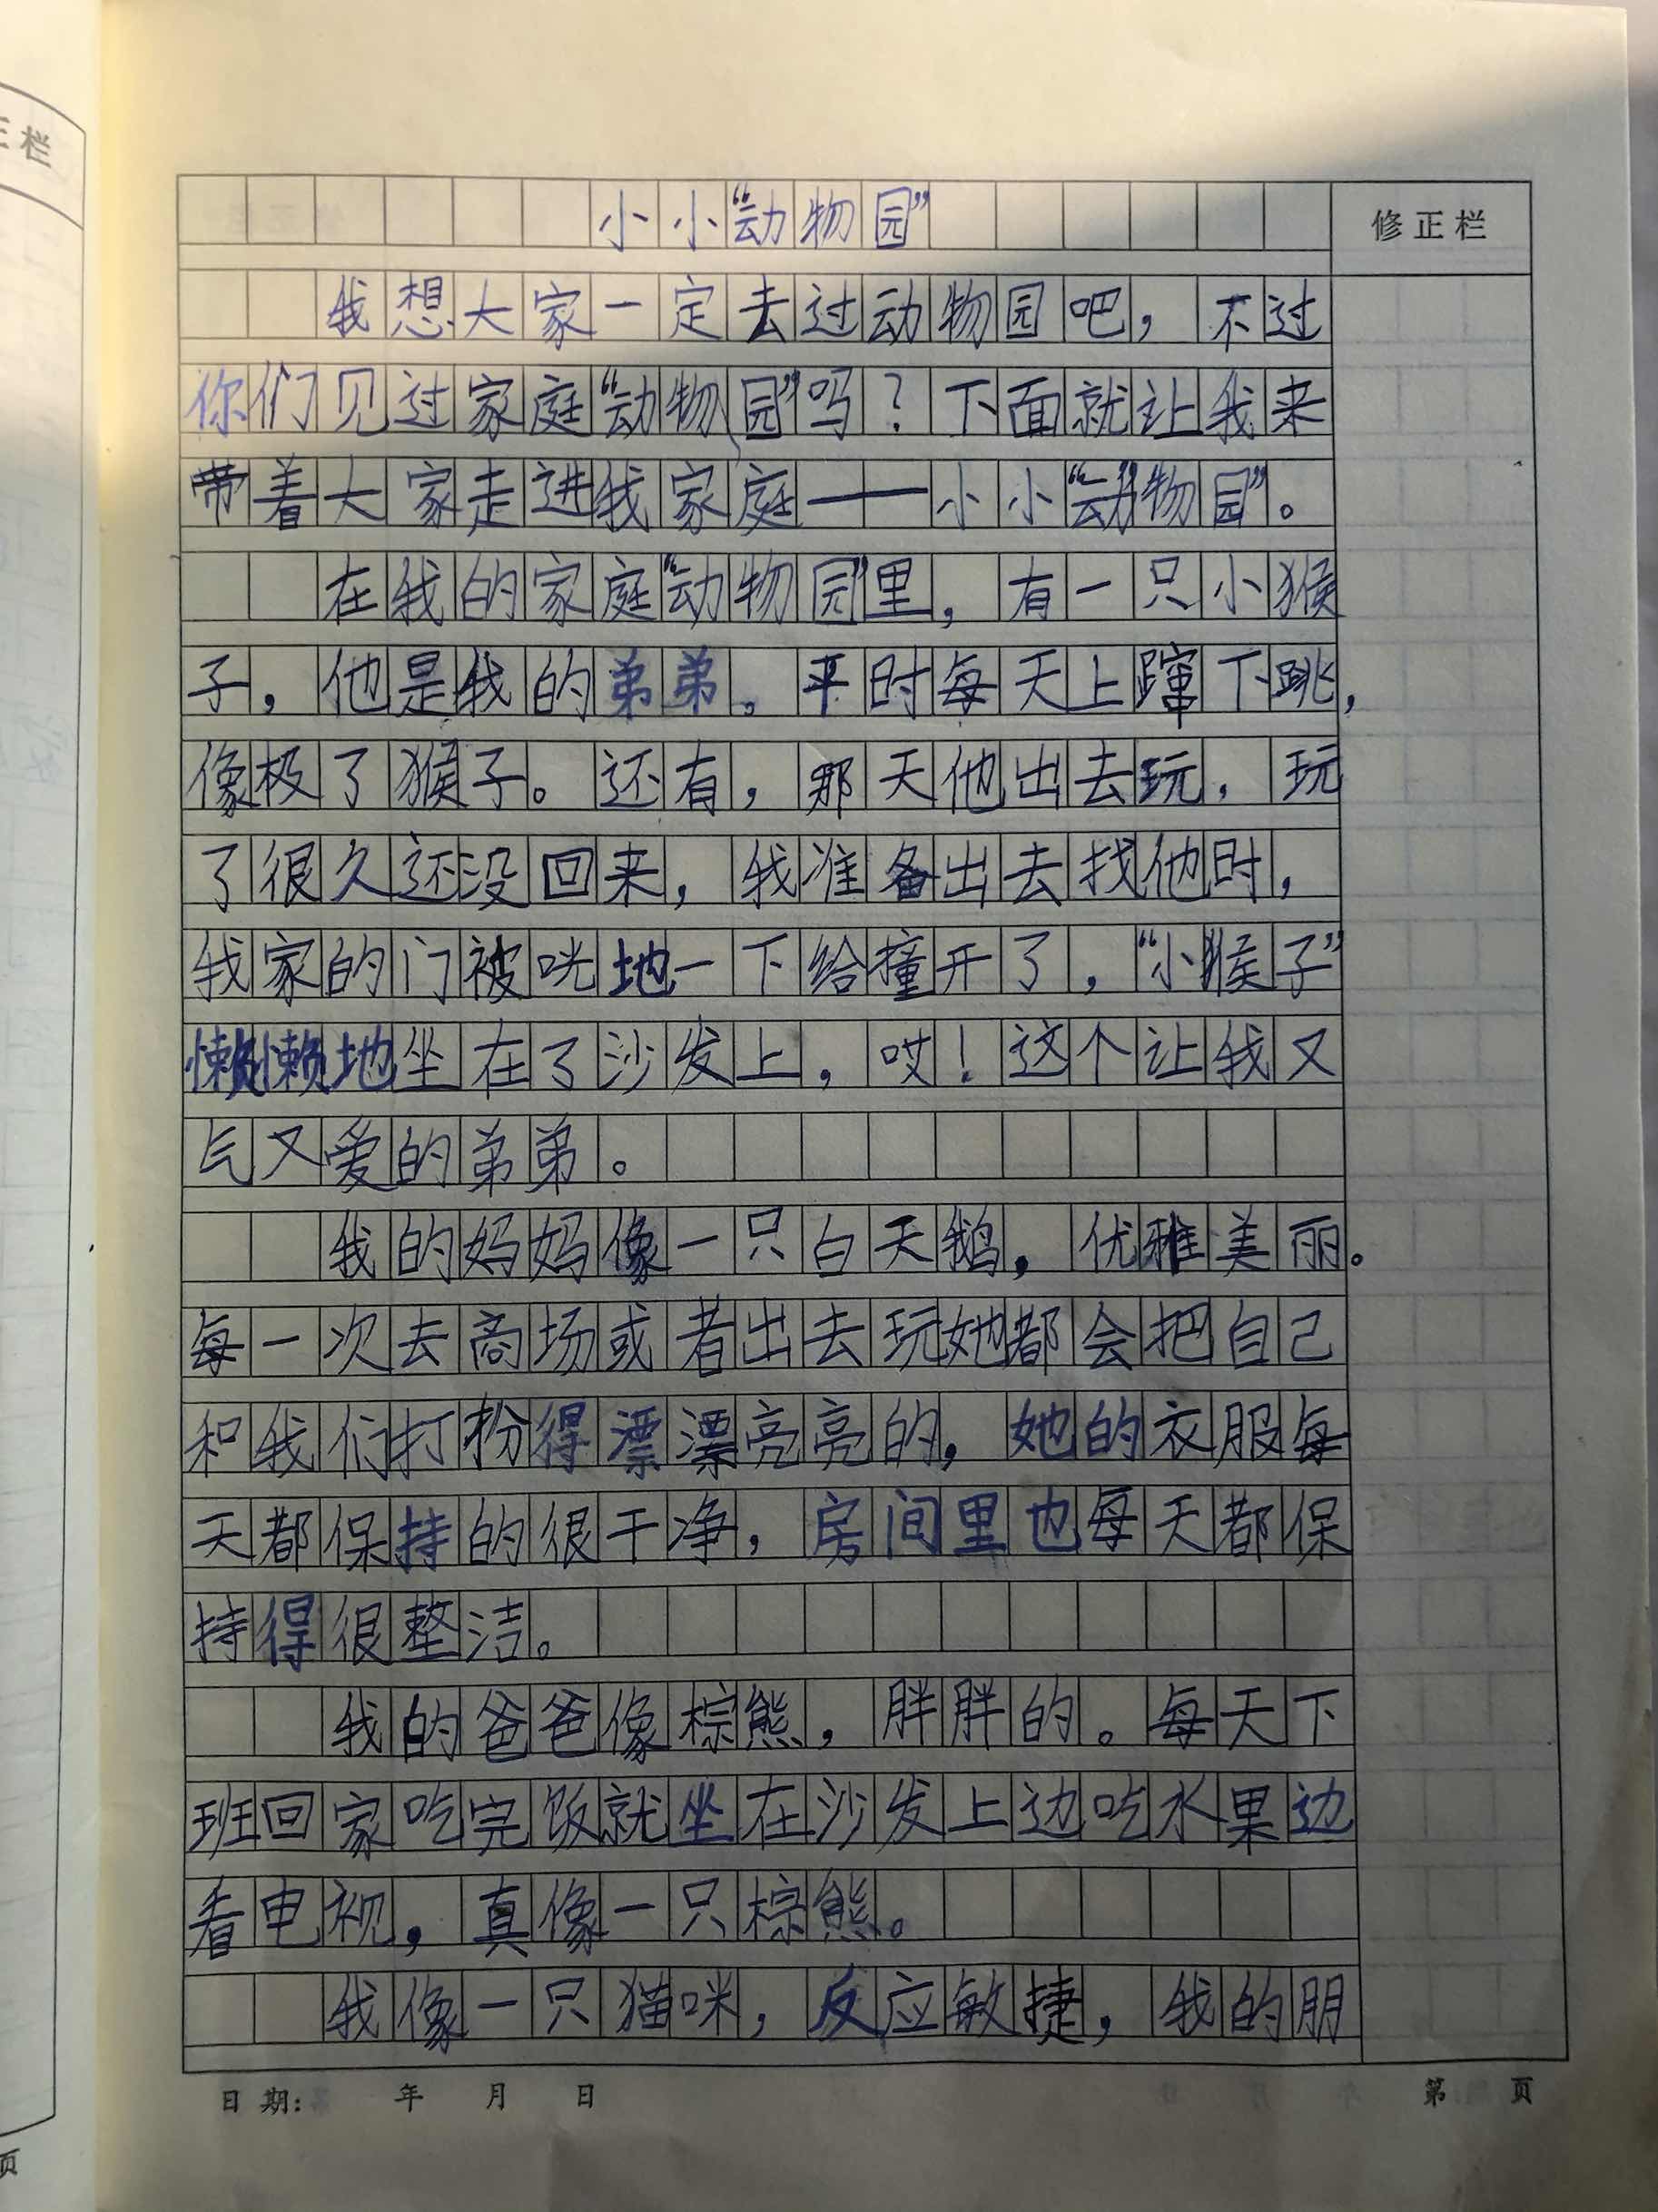 三栏
小小“动物园”
修正栏
我想大家一定去过动物园吧，不过
你们见过家庭“动物园”吗？下面就让我来
带着大家走进我家庭——小小“动物园”。
在我的家庭“动物园”里，有一只小猴
子，他是我的弟弟。平时每天上蹿下跳，
像极了猴子。还有，那天他出去玩，玩
了很久还没回来，我准备出去找他时，
我家的门被咣地一下给撞开了，“小猴子”
懒懒地坐在了沙发上，哎！这个让我又
气又爱的弟弟。
我的妈妈像一只白天鹅，优雅美丽。
每一次去商场或者出去玩她都会把自己
和我们打扮得漂漂亮亮的，她的衣服每
天都保持的很干净，房间里也每天都保
持得很整洁。
我的爸爸像棕熊，胖胖的。每天下
班回家吃完饭就坐在沙发上边吃水果边
看电视，真像一只棕熊。
我像一只猫咪，反应敏捷，我的朋
日期： 年 月 日 第 页
页